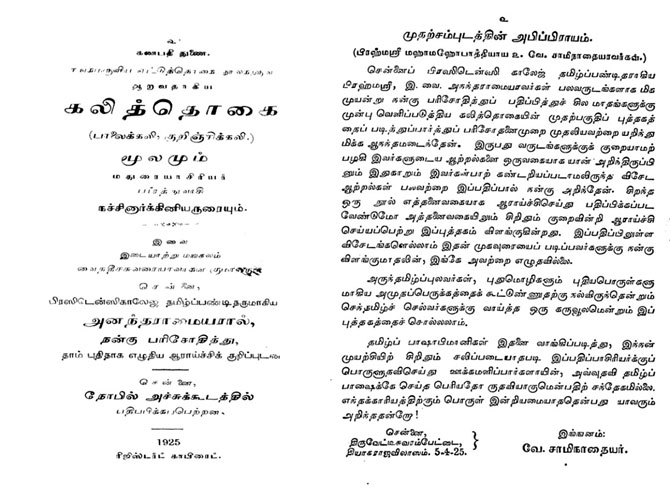 உ
கணபதி துணை.
ஆறாவதாகிய
கலித்தொகை
(பாலைக்கலி, குறிஞ்சிக்கலி.)
மூலமும்
மதுரையாசிரியர்
நச்சினார்க்கினியருரையும்.
இவை
இடையாற்று மங்கலம்
சென்னை,
பிரஸிடென்ஸிகாலேஜ் தமிழ்ப்பண்டிதருமாகிய
அனந்தராமையரால்,
நன்கு பரிசோதித்து,
தாம் புதிதாக எழுதிய ஆராய்ச்சிக் குறிப்புடன்
சென்னை,
நோபில் அச்சுக்கூடத்தில்
பதிப்பிக்கப்பெற்றன.
1925
ரிஜிஸ்டர்ட் காபிரைட்.
உ
முதற்சம்புடத்தின் அபிப்பிராயம்.
(பிரஹ்மஸ்ரீ மஹாமஹோபாத்தியாய உ. வே. சாமிநாதையரவர்கள்.)
சென்னைப் பிரஸிடென்ஸி காலேஜ் தமிழ்ப்பண்டிதராகிய
பிரஹ்மஸ்ரீ, இ. வை. அநந்தராமையரவர்கள் பலவருடங்களாக மிக
முயன்று நன்கு பரிசோதித்துப் பதிப்பித்துச் சில மாதங்களுக்கு
முன்பு வெளிப்படுத்திய கலித்தொகையின் முதற்பகுதிப் புத்தகத்
தைப் படித்துப்பார்த்துப் பரிசோதனைமுறை முதலியவற்றை யறிந்து
மிக்க ஆநந்தமடைந்தேன். இருபது வருடங்களுக்குக் குறையாமற்
பழகி இவர்களுடைய ஆற்றல்களை ஒருவகையாக யான் அறிந்திருப்பி
னும் இதுகாறும் இவர்கள்பாற் கண்டறியப்படாமலிருந்த விசேட
ஆற்றல்கள் பலவற்றை இப்பதிப்பால் நன்கு அறிந்தேன். சிறந்த
ஒரு நூல் எத்தனைவகையாக ஆராய்ச்சிசெய்து பதிப்பிக்கப்பட
வேண்டுமோ அத்தனைவகையிலும் சிறிதும் குறைவின்றி ஆராய்ச்சி
செய்யப்பெற்று இப்புத்தகம் விளங்குகின்றது. இப்பதிப்பிலுள்ள
விசேடங்களெல்லாம் இதன் முகவுரையைப் படிப்பவர்களுக்கு நன்கு
விளங்குமாதலின், இங்கே அவற்றை எழுதவில்லை.
அருந்தமிழ்ப்புலவர்கள், புதுமொழிகளும் புதியபொருள்களு
மாகிய அமுதப்பெருக்கத்தைக் கூட்டுண்ணுதற்கு நல்விருந்தென்றும்
செந்தமிழ்ச் செல்வர்களுக்கு வாய்த்த ஒரு கருவூலமென்றும் இப்
புத்தகத்தைச் சொல்லலாம்.
தமிழ்ப் பாஷாபிமானிகள் இதனை வாங்கிப்படித்து, இந்நன்
முயற்சியிற் சிறிதும் சலிப்படையாதபடி இப்பதிப்பாசிரியர்க்குப்
பொருளுதவிசெய்து ஊக்கமளிப்பார்களாயின், அவ்வுதவி தமிழ்ப்
பாஷைக்கே செய்த பெரியதோ ருதவியாகுமென்பதிற் சந்தேகமில்லை.
எந்தக்காரியத்திற்கும் பொருள் இன்றியமையாததென்பது யாவரும்
அறிந்ததன்றோ!
சென்னை,
திருவேட்டீசுவரன்பேட்டை,
தியாகராஜவிலாஸம். 5-4-25.
இங்ஙனம்:
வே. சாமிநாதையர்.